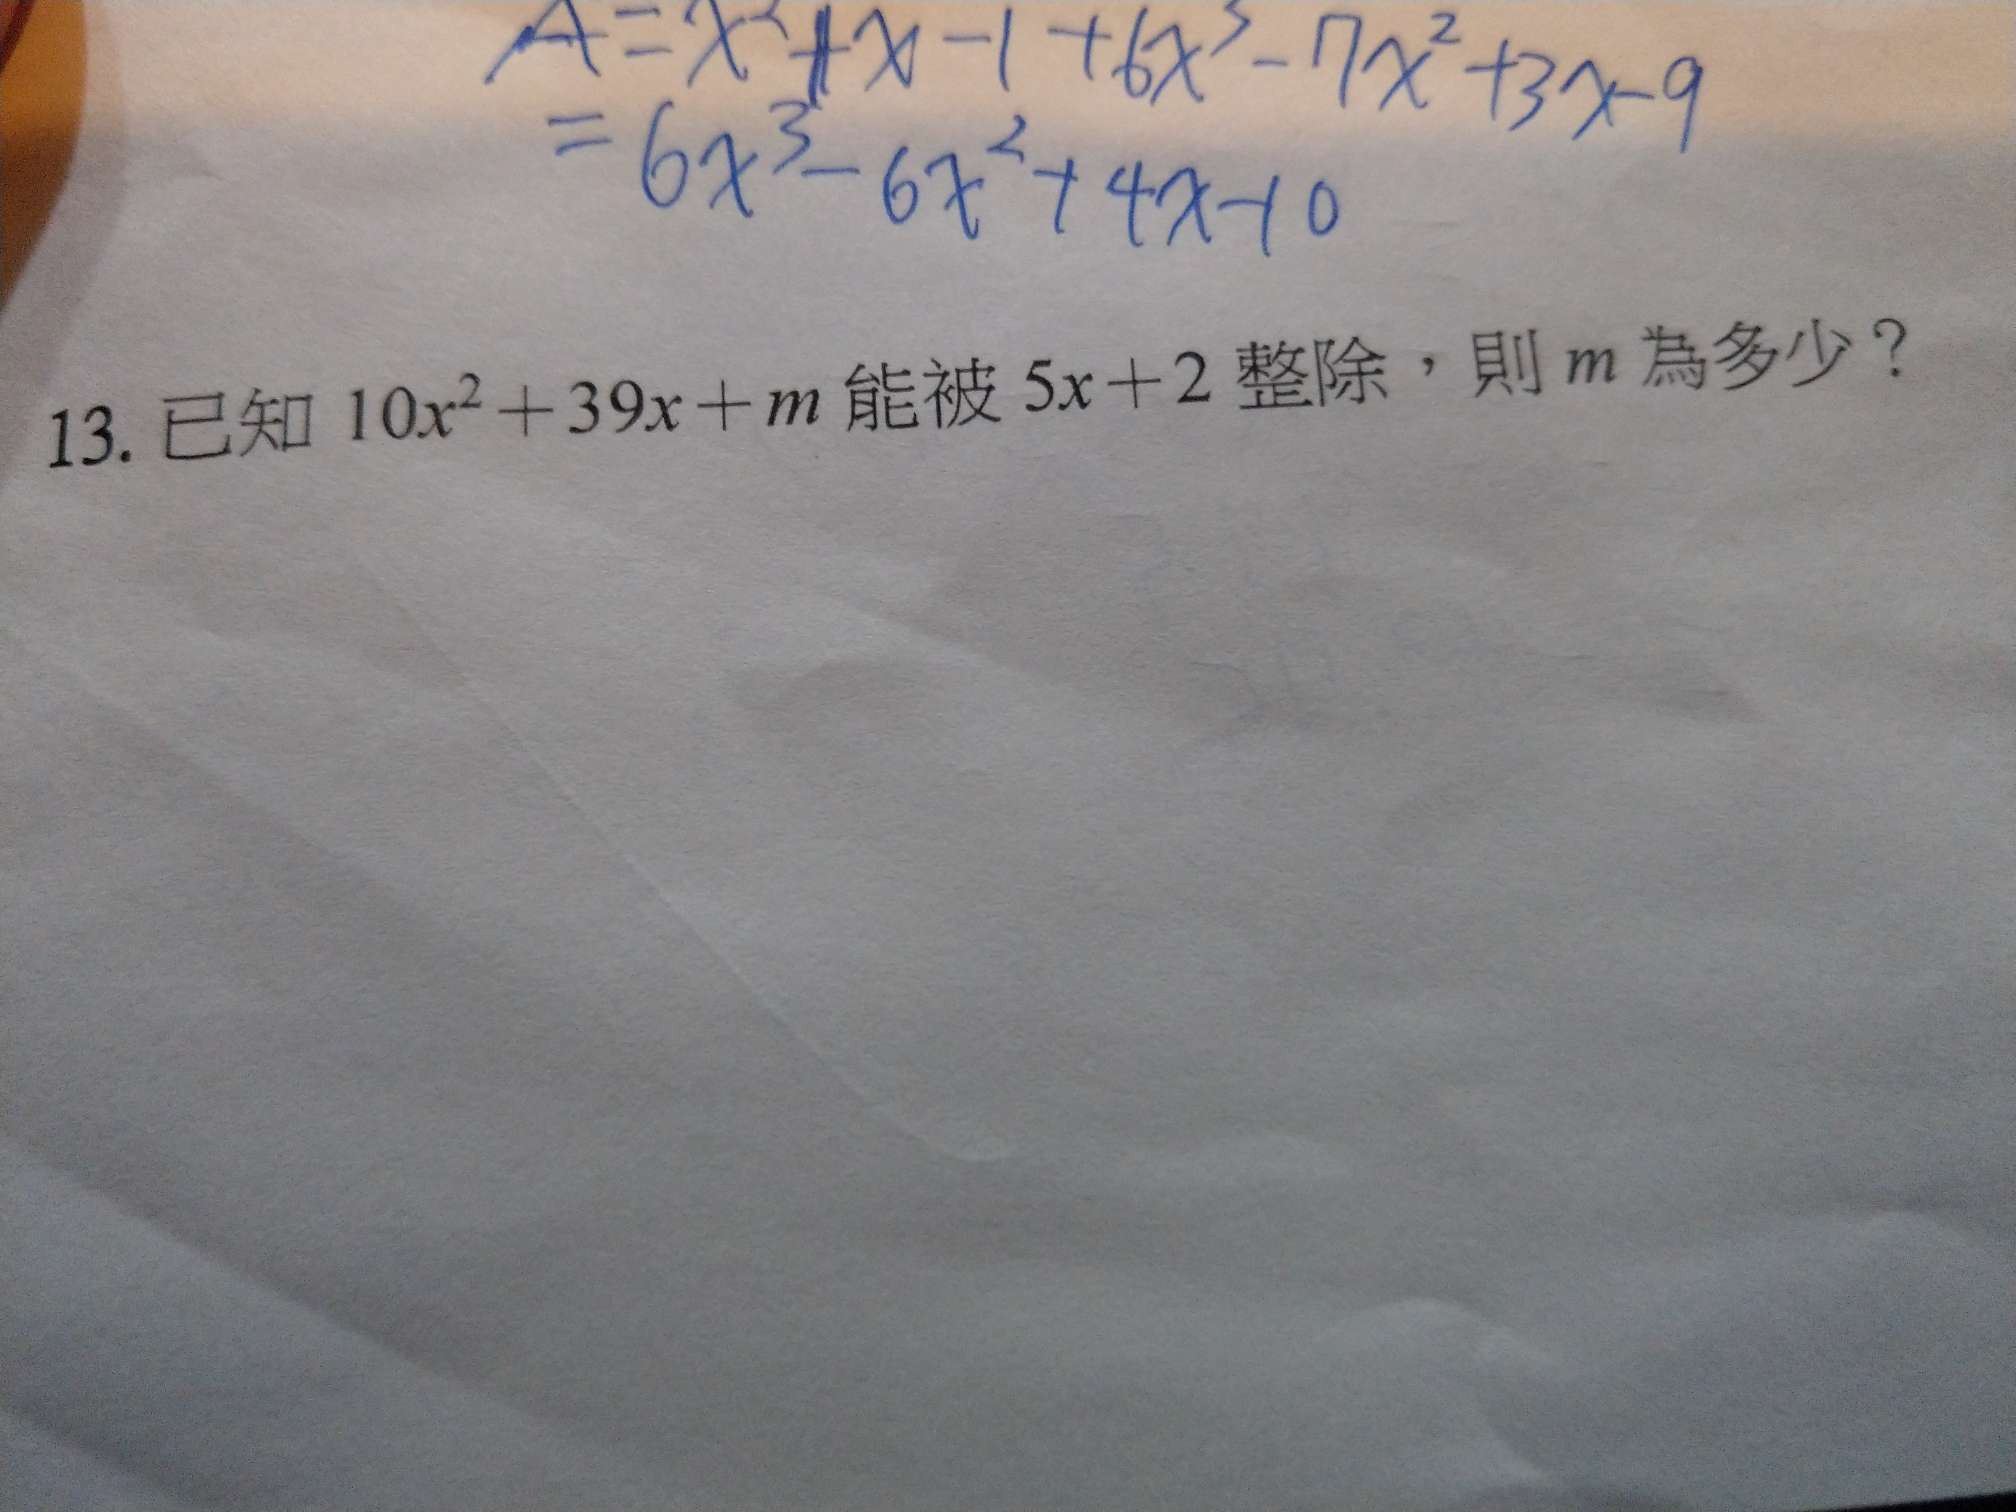 A=x²+x-1+6x³-7x²+3x-9
=6x³-6x²+4x-10
13. 已知 10x²+39x+m 能被 5x+2 整除，則 m 為多少？